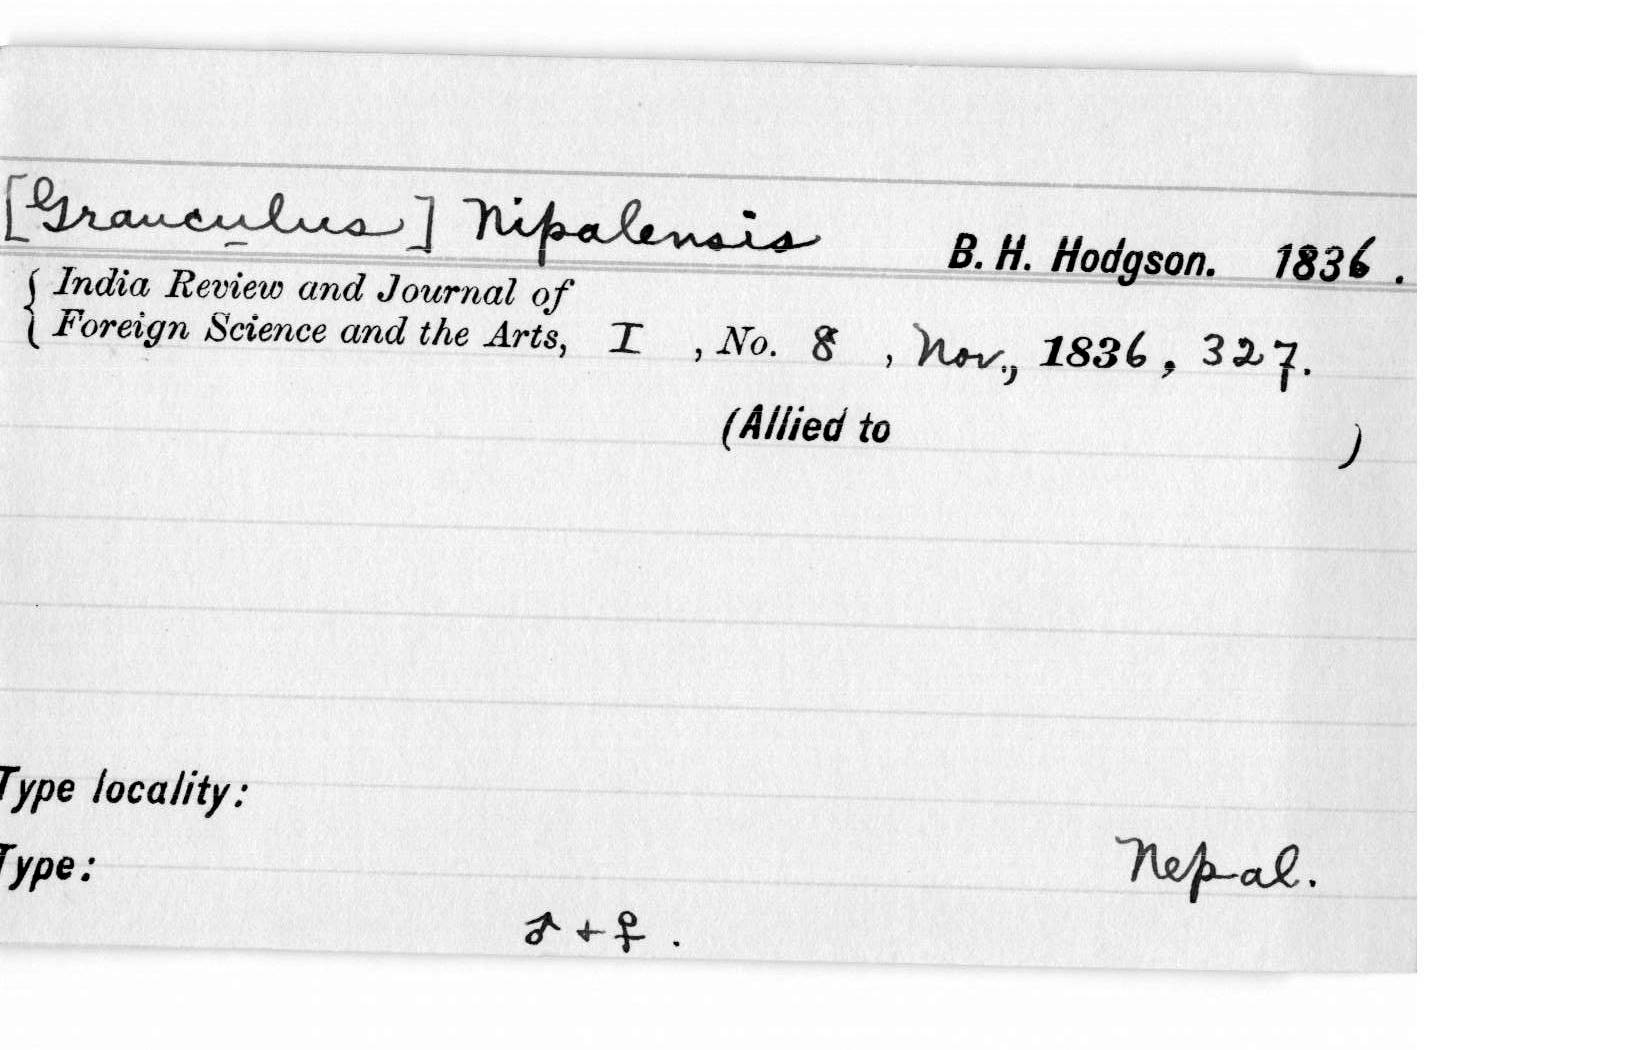 [Grauculus] Nipalensis B. H. Hodgson. 1836.
India Review and Journal of
Foreign Science and the Arts, I, No. 8, Nov., 1836, 327.
(Allied to )
Type locality:
Nepal.
Type:
♂ + ♀.